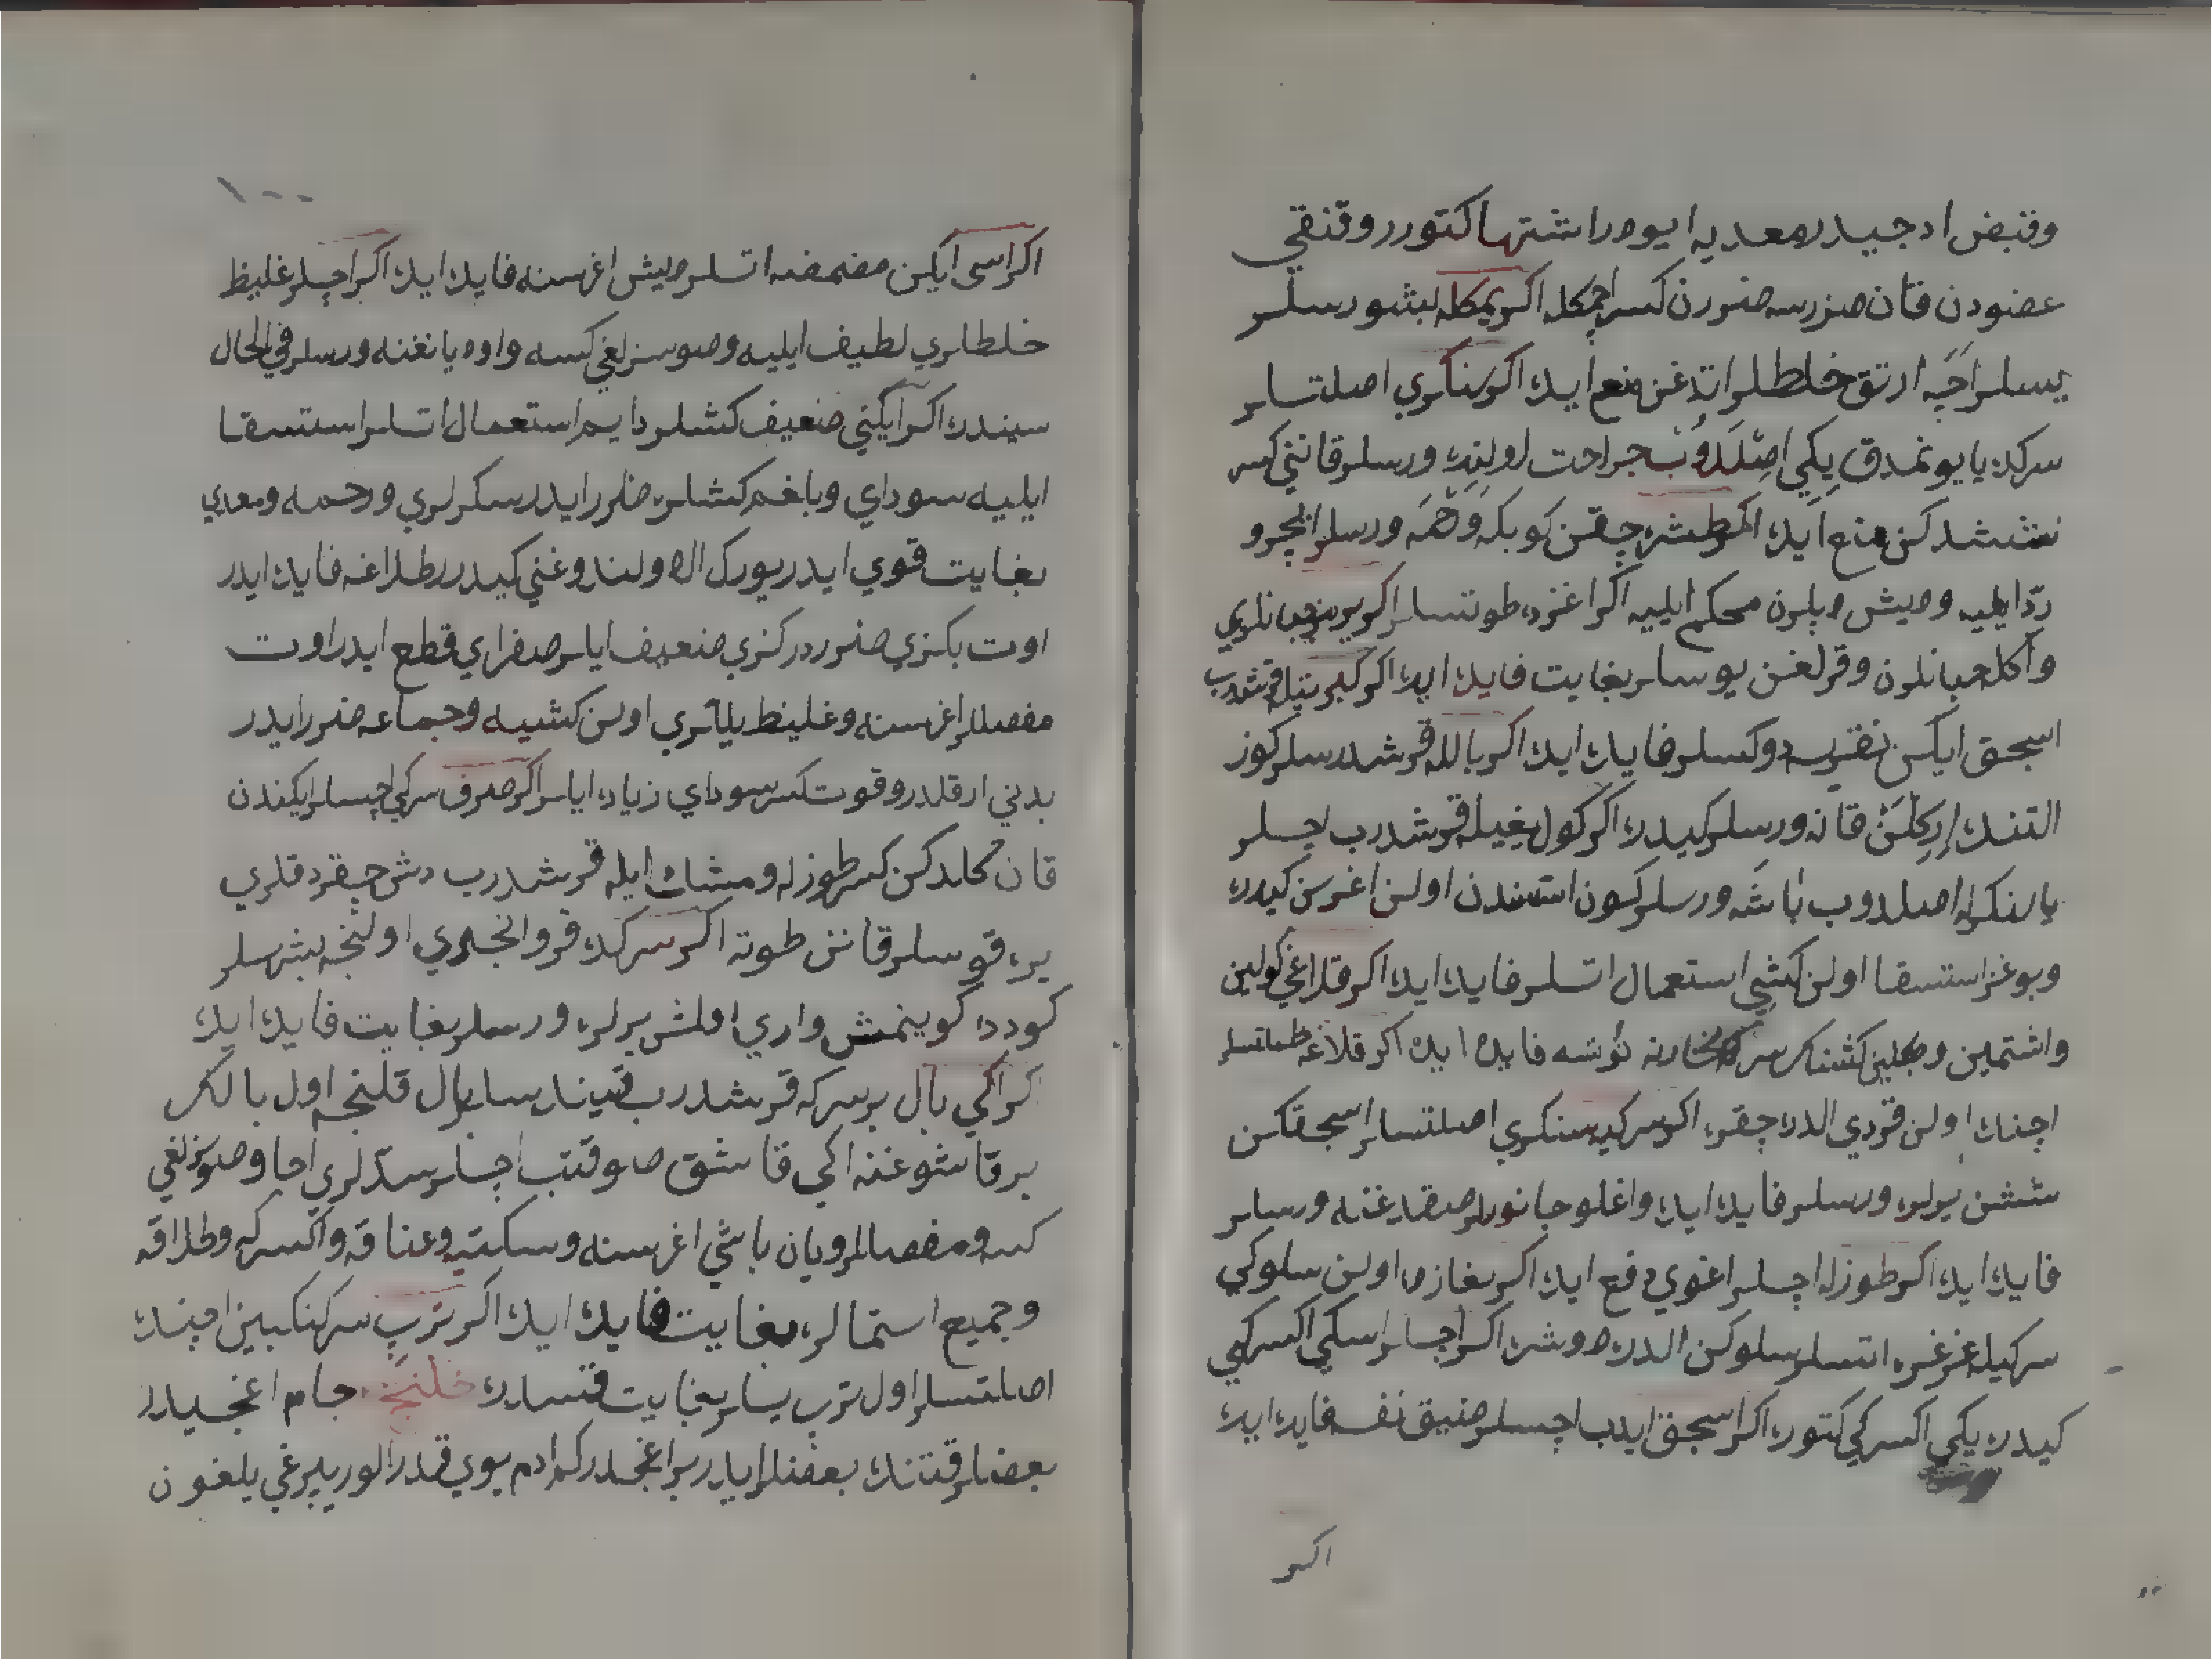 وقبض ادجيدر معديه ايودر اشتها كتورر وقنقي
عضودن قان صزرسه ضررن كسر اجمكله اكر يمكله بشورسلر
يسلر اجه ارتق خلطلر اتدغن منع ايده اكر سنكري اصلتسلر
سركه يا يوغمدق يكي اصلدوب جراحت اولنه ورسلر قانني كسر
ششدكن منع ايده اكر طشره چقن كوبكه وحمه ورسلر ايچرو
رد ايليه وديش دبلرن محكم ايليه اكر اغزده طوتسلر اكر
واكله چبانلرن وقزلغن يوسلر بغايت فايده ايده اكر كبريتيله قرشدرب
اسجق ايكن نقرسه دوكسلر فايده ايده اكر بالله قرشدرسلر كوز
التنده قانه ورسلر كيدره اكر كول ياغيله قرشدرب اچسلر
يا سنكره اصلدوب باشه ورسلر كون استندن اولن اغرسن كيدره
وبوغز استسقا اولن كشي استعمال اتسلر فايده ايده اكر قلاغي
واشتمين كشنك سركه بخارنه طوتسه فايده ايده اكر قلاغه طمزتسلر
اچنده اولن قوردي الدره چقره اكر سركيه سنكري اصلتسلر اسجقكن
ششن يرلره ورسلر فايده ايده واغلو جانورلر صقدغنه ورسلر
فايده ايده اكر طوزله اچسلر اغوي دفع ايده اكر بغازده اولن سلوكي
سركيله غرغره اتسلر سلوكن الدره دوشره اكر اچسلر اسكي اكسركي
كيدره يكي اكسركي كتوره اكر اسجق ايدب اچسلر ضيق نفسه فايده ايده
اكر
١٠٠
اكر اسي ايكن مضمضه اتسلر ديش اغرسنه فايده ايده اكر اچسلر غليظ
خلطلري لطيف ايليه وصوسزلغي كسه واوده يانغنه ورسلر في الحال
سيندره اكر ايكني ضعيف كشلر دايم استعمال اتسلر استسقا
ايليه سوداي وبلغم كشلره ضرر ايدر سكرلري ورحمه ومعدي
بغايت قوي ايدر يورك الده ولندوغني كيدرر طلاغه فايده ايدر
اوت بكزي صزردر كزي ضعيف ايلر صفراي قطع ايدر اوت
مفصللر اغرسنه وغليظ يللري اولن كشيه وجماعه ضرر ايدر
بدني ارقلدر وقوت كسر سوداي زياده ايلر اكر صرف سركي اچسلر ايكندن
قان كلدكن كسر طوزله ومشك ايله قرشدرب دش چقردقلري
يره قوسلر قانن طوته اكر سركه قرو انجيري اولنجه بشرسلر
كودده كوينمش واري اولمش يرلره ورسلر بغايت فايده ايده
اكر ايكي بال بر سركه قرشدرب قيندسلر بال قلنجه اول بالكر
بر قاشوغنه ايكي قاشق صو قتب اچسلر سدلري اچا وصوسزلغي
كسه ومفصللر ويان باشي اغرسنه وسكته وعناقه واكسركه وطلاقه
وجميع استمالره بغايت فايده ايده اكر ترب سركنكبين اچنده
اصلتسلر اول ترب يسلر بغايت قتسدره خلنج جام اغجيدر
بعضلر قتنده بعضلر ايدر بر اغجدركم ادم بوي قدر الور يپرغي يلغون